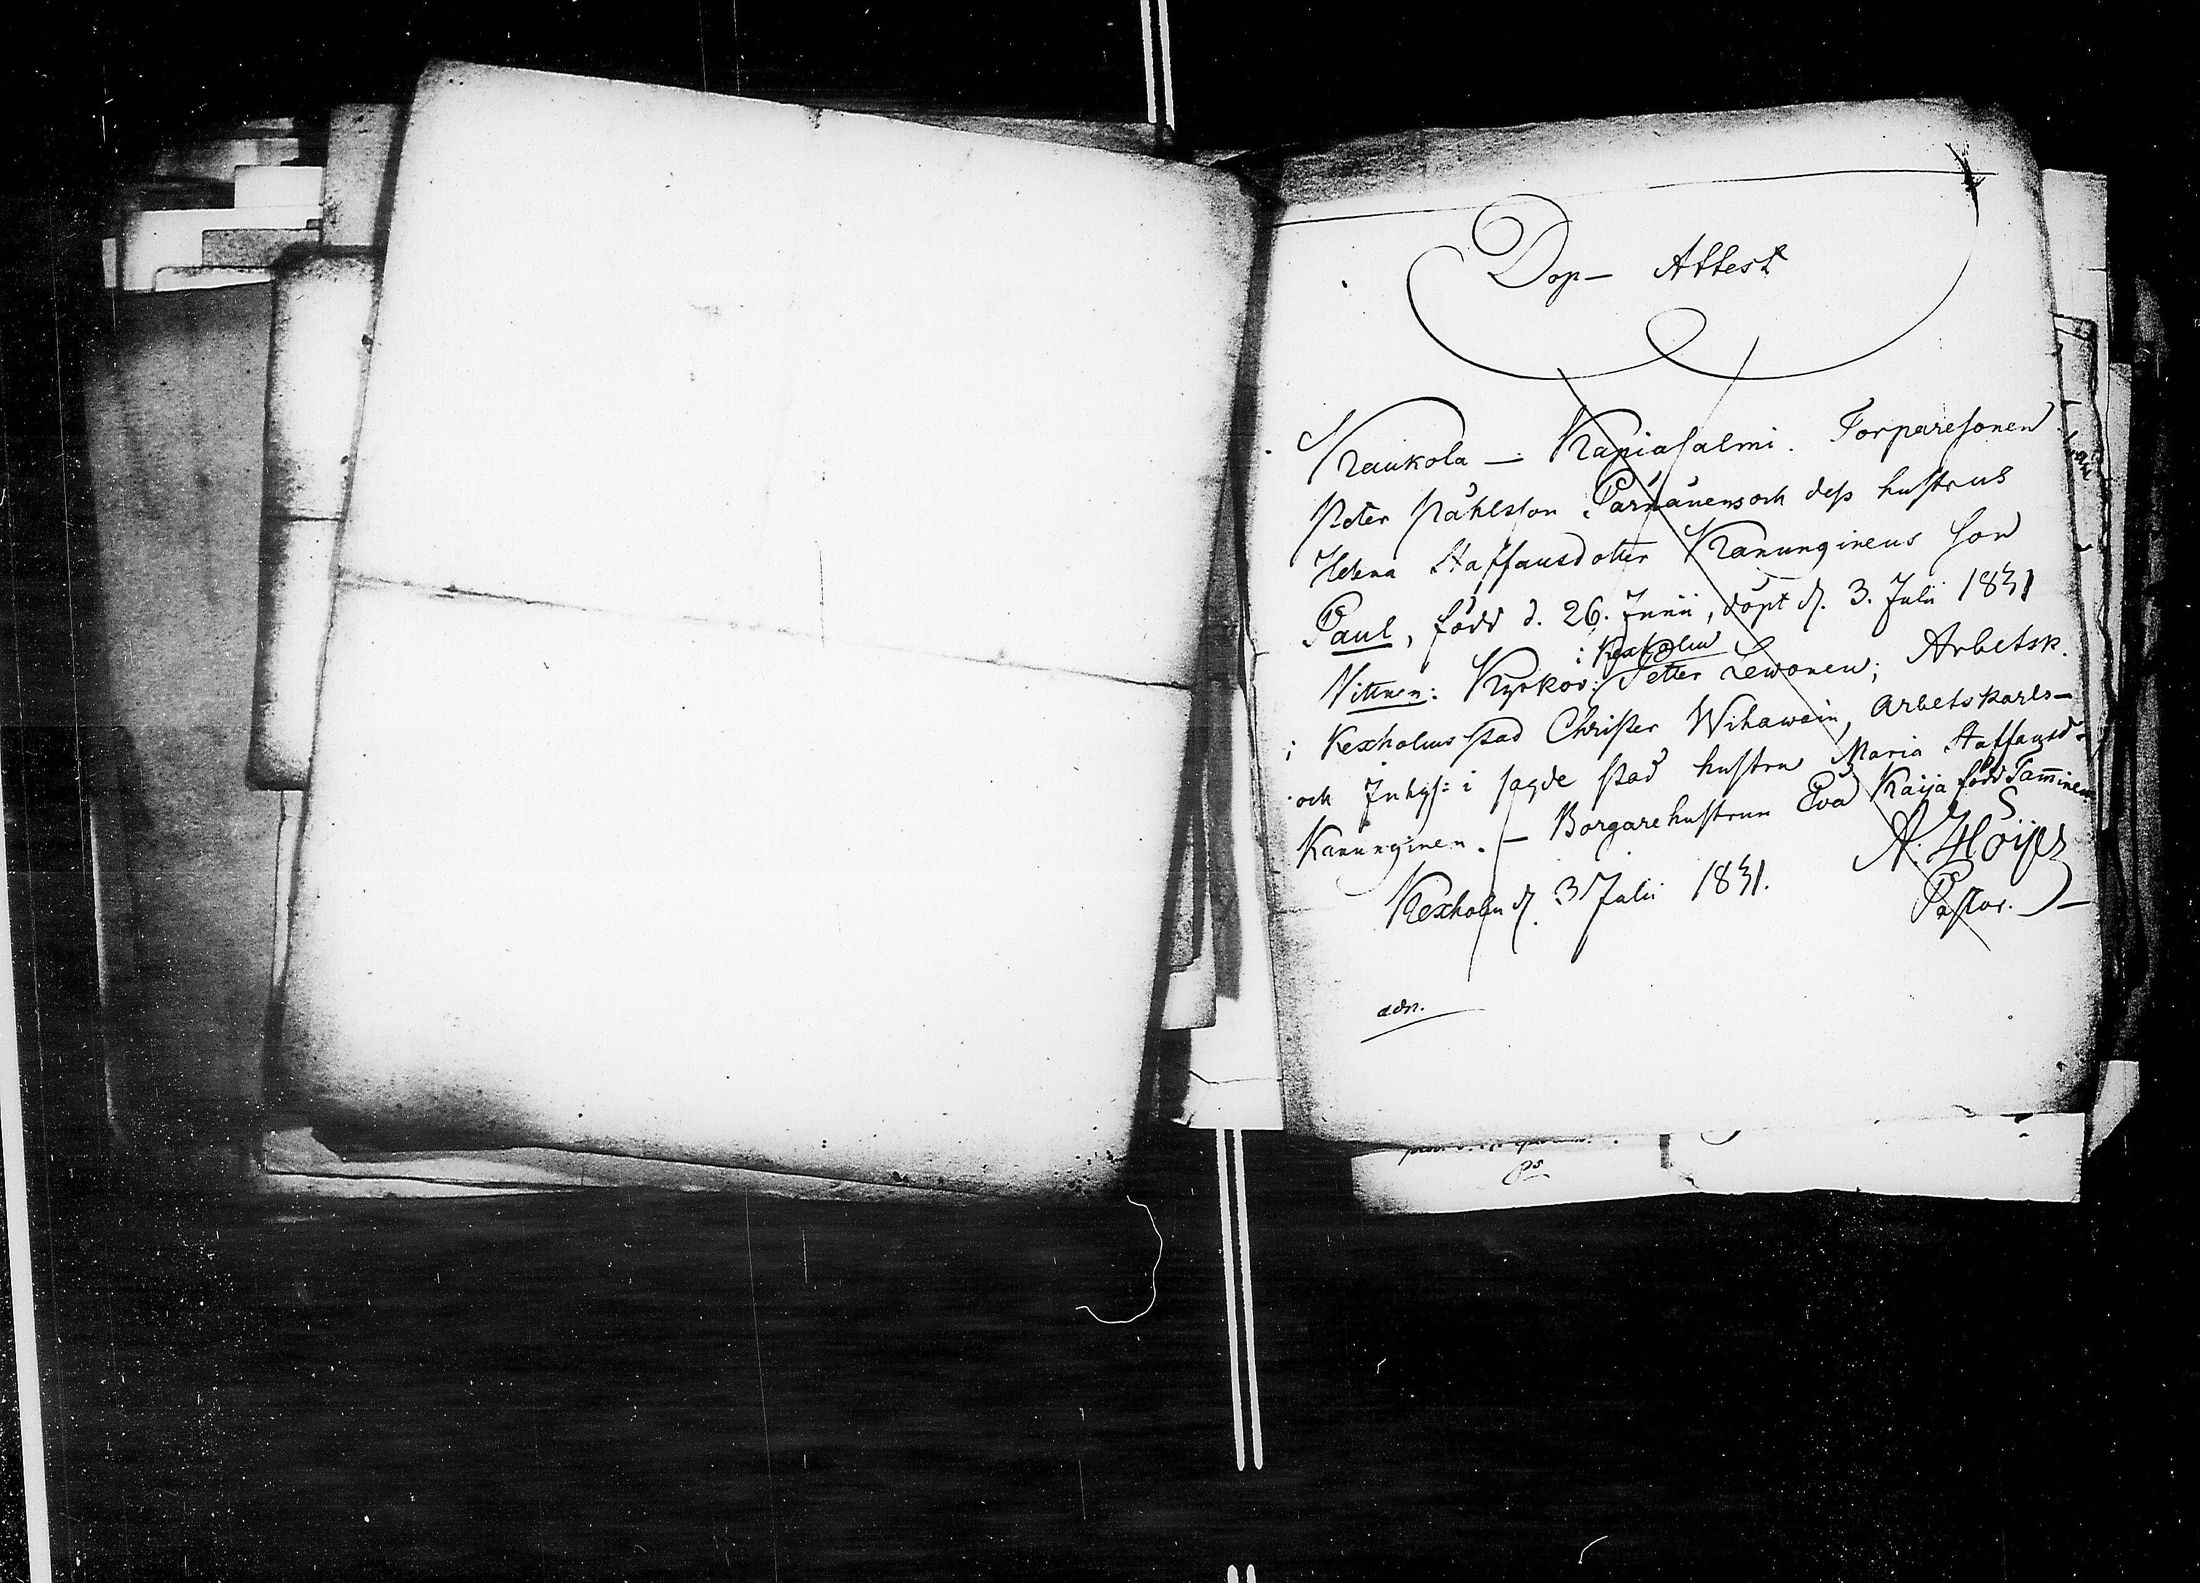 Dop- Attest
Kaukola - Kapiasalmi. Torparesonen
Peter Påhlsson Pärnänens och dess hustrus
Helena Staffansdotter Kanunginens son
Paul, född d. 26. Junii, döpt d. 3. Julii 1831
i Kexholm
Vittnen: Kyrkov: Petter Lewonen; Arbetsk.
i Kexholms stad Christer Wihawain, Arbetskarls-
och Inhys: i sagde stad hustru Maria Staffansd:
Kanunginen. - Borgarehustrun Eva Kaija född Tamminen
Kexholm d. 3 Julii 1831.
A. Höijer
Pastor.
adn.